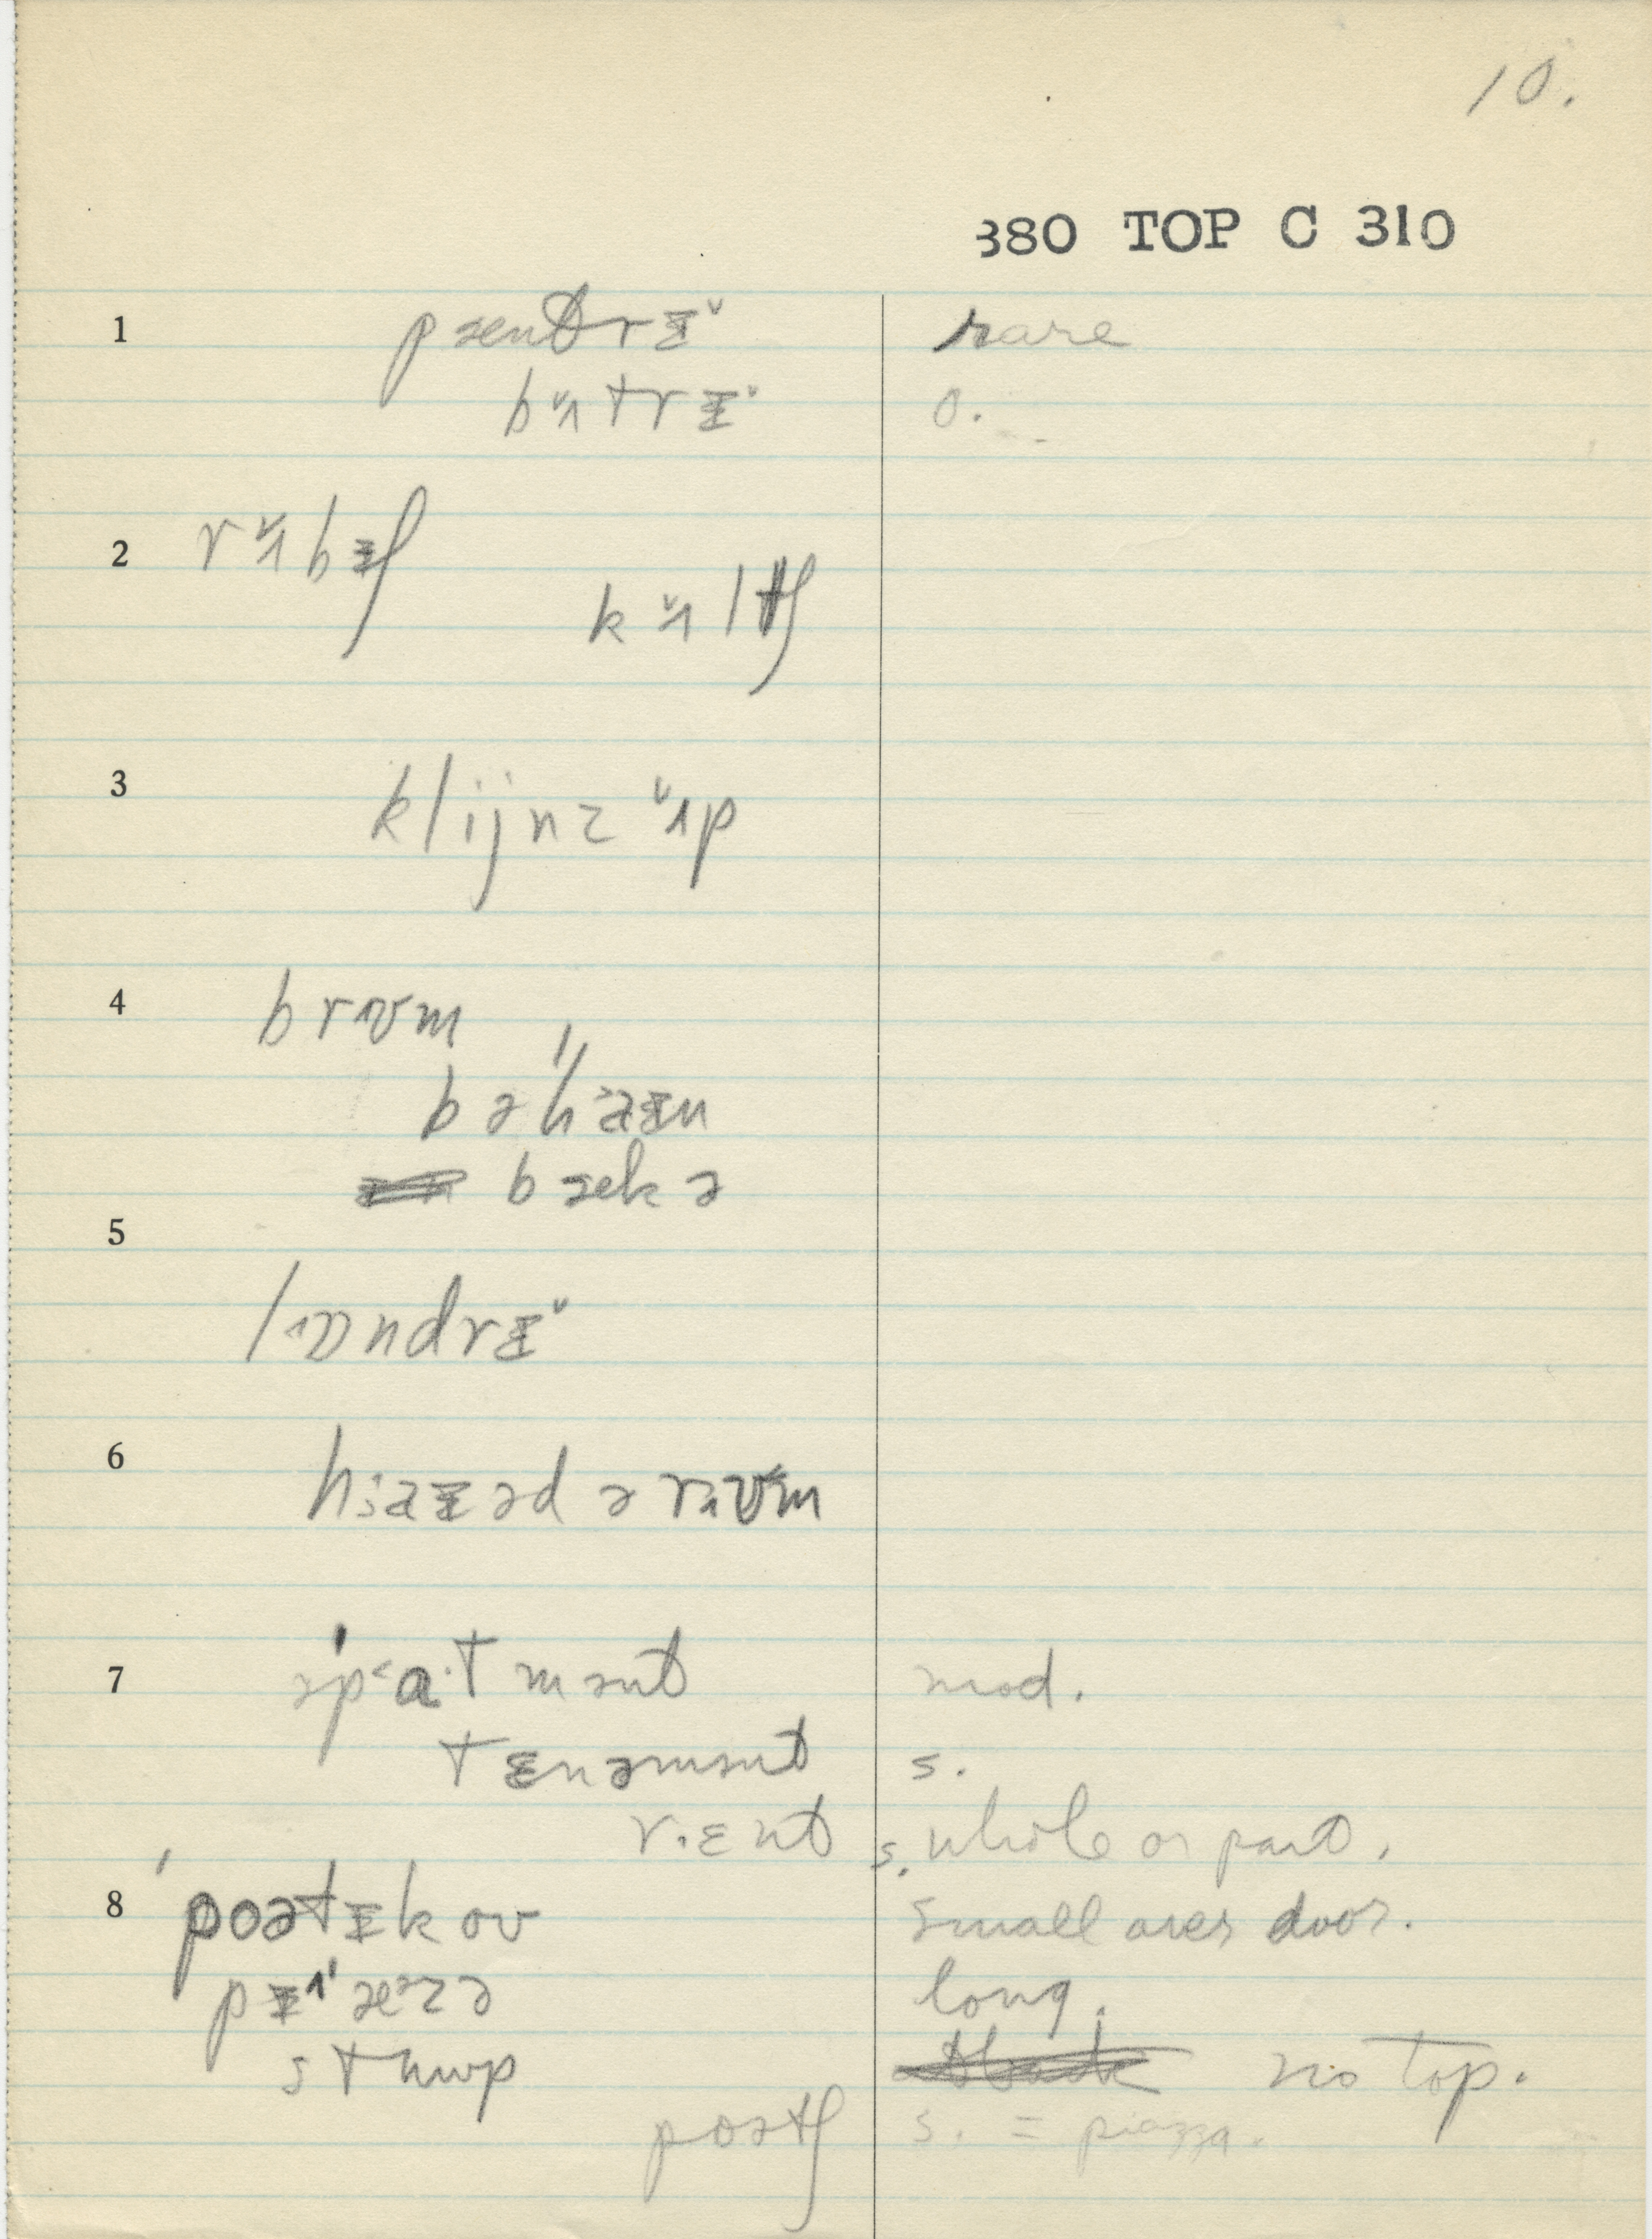 10.
380 TOP C 310
1 pæntrɪ˅ rare
bʌ˅trɪ˅ o.
2 rʌ˅bɪʃ
kʌ˅ltʃ
3 klijnz ʌ˅p
4 brʊm
bəhaɪn
bækə
5
lɒndrɪ˅
6 haɪəd ə rʊm
7 əpˈa·tmənt mod.
tɛnəmənt s.
r·ɛnt s. whole or part.
8 ˈpoətɪkoʊ small over door.
pɪˈæzə long.
stuwp no top.
poətʃ s. = piazza.